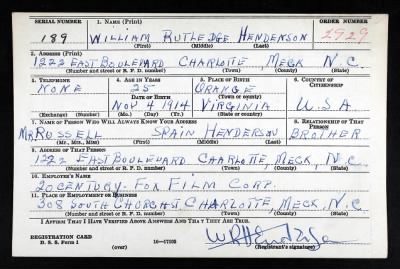 SERIAL NUMBER 1. NAME (Print) ORDER NUMBER
189 WILLIAM RUTLEDGE HENDERSON 2929
(First) (Middle) (Last)
2. ADDRESS (Print)
1222 EAST BOULEVARD CHARLOTTE, MECK N.C.
(Number and street or R. F. D. number) (Town) (County) (State)
3. TELEPHONE 4. AGE IN YEARS 5. PLACE OF BIRTH 6. COUNTRY OF CITIZENSHIP
NONE 25 ORANGE
DATE OF BIRTH (Town or county)
NOV 4 1914 VIRGINIA U.S.A
(Exchange) (Number) (Mo.) (Day) (Yr.) (State or country)
7. NAME OF PERSON WHO WILL ALWAYS KNOW YOUR ADDRESS 8. RELATIONSHIP OF THAT PERSON
MR RUSSELL SPAIN HENDERSON BROTHER
(Mr., Mrs., Miss) (First) (Middle) (Last)
9. ADDRESS OF THAT PERSON
1222 EAST BOULEVARD CHARLOTTE, MECK, N.C.
(Number and street or R. F. D. number) (Town) (County) (State)
10. EMPLOYER'S NAME
20 CENTURY-FOX FILM CORP.
11. PLACE OF EMPLOYMENT OR BUSINESS
308 SOUTH CHURCH ST. CHARLOTTE, MECK, N.C.
(Number and street or R. F. D. number) (Town) (County) (State)
I AFFIRM THAT I HAVE VERIFIED ABOVE ANSWERS AND THAT THEY ARE TRUE.
REGISTRATION CARD
D. S. S. Form 1 (over) 16-17105 (Registrant's signature)